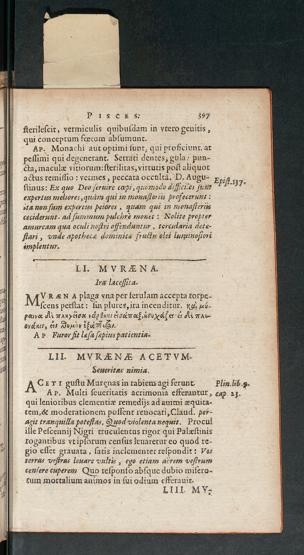 PISCES. 397
sterilescit, vermiculis quibusdam in vtero genitis,
qui conceptum fœtum absumunt.
AP. Monachi aut optimi sunt, qui proficiunt, at
pessimi qui degenerant. Serrati dentes, gula: pun-
cta, maculæ vitiorum: sterilitas, virtutis post aliquot
actus remissio: vermes, peccata occulta. D. Augu-
stinus: Ex quo Deo seruire cœpi, quomodo difficiles sum
Epist. 137.
expertus meliores, quàm qui in monasteriis profecerunt:
ita non sum expertus peiores, quam qui in monasteriis
ceciderunt. ad summum pulchrè monet: Nolite propter
amurcam qua oculi nostri offenduntur, torcularia dete-
stari, vnde apotheca dominica fructu olei luminosiori
implentur.
LI. MVRÆNA.
Ira lacessita.
MVRÆNA plaga vna per ferulam accepta torpe-
scens perstat: sin plures, ira incenditur.
AP Furor fit læsa sæpius patientia.
LII. MVRÆNÆ ACETVM.
Seueritas nimia.
ACETI gustu Murenas in rabiem agi ferunt.
Plin. lib. 9.
cap. 23.
AP. Multi seueritatis acrimonia efferantur,
qui lenioribus clementiæ remediis ad animi æquita-
tem, & moderationem possent reuocari, Claud. per-
agit tranquilla potestas, Quod violenta nequit. Procul
ille Pescennij Nigri truculentus rigor qui Palæstinis
rogantibus vt ipsorum census leuaretur eo quod re-
gio esset grauata, satis inclementer respondit: Vos
terras vestras leuare vultis, ego etiam aërem vestrum
censere cuperem Quo responso absque dubio misero-
rum mortalium animos in sui odium efferauit.
LIII. MV-